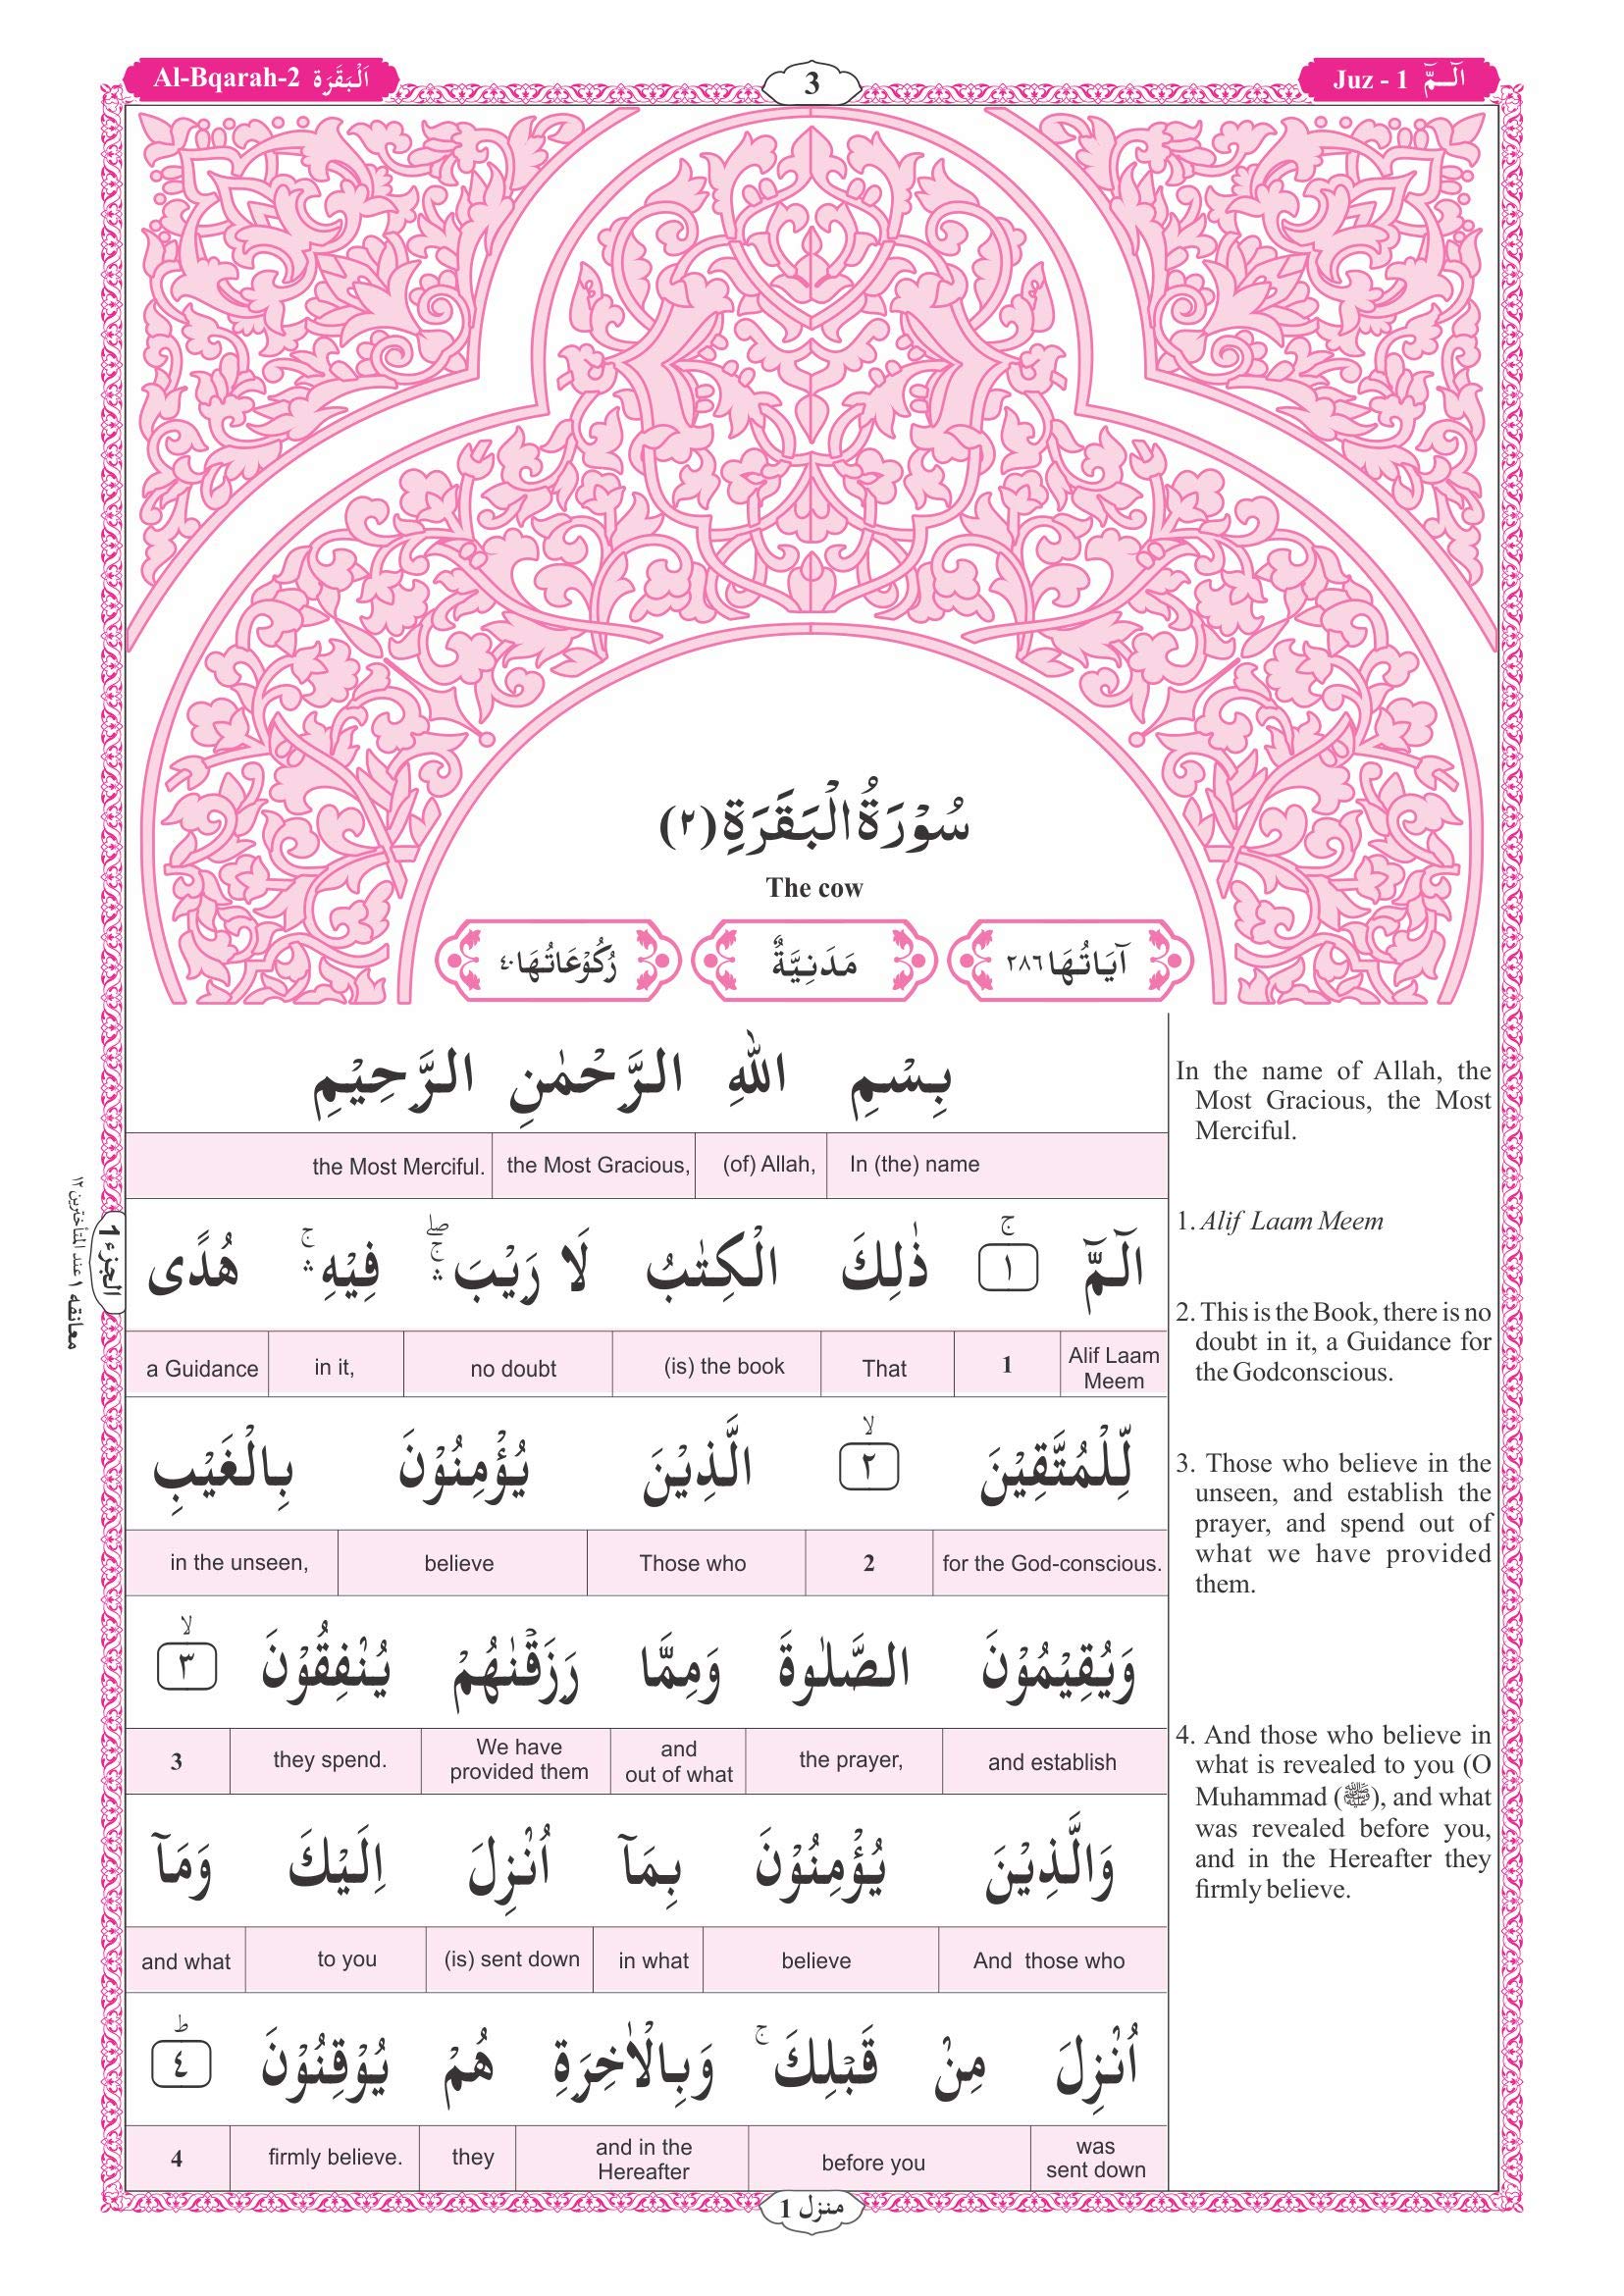 Al-Bqarah-2 اَلْبَقَرَة
3
Juz - 1 الٓـمّٓ
سُوْرَةُ الْبَقَرَةِ (٢)
The cow
اٰيَاتُهَا ٢٨٦
مَدَنِيَّةٌ
رُكُوْعَاتُهَا ٤٠
بِسْمِ اللّٰهِ الرَّحْمٰنِ الرَّحِيْمِ
In (the) name (of) Allah, the Most Gracious, the Most Merciful.
الٓـمّٓ ۚ ١ ذٰلِكَ الْكِتٰبُ لَا رَيْبَ ۛۖۚ فِيْهِ ۛۚ هُدًى
Alif Laam Meem 1 That (is) the book no doubt in it, a Guidance
لِّلْمُتَّقِيْنَ ۙ ٢ الَّذِيْنَ يُؤْمِنُوْنَ بِالْغَيْبِ
for the God-conscious. 2 Those who believe in the unseen,
وَيُقِيْمُوْنَ الصَّلٰوةَ وَمِمَّا رَزَقْنٰهُمْ يُنْفِقُوْنَ ۙ ٣
and establish the prayer, and out of what We have provided them they spend. 3
وَالَّذِيْنَ يُؤْمِنُوْنَ بِمَآ اُنْزِلَ اِلَيْكَ وَمَآ
And those who believe in what (is) sent down to you and what
اُنْزِلَ مِنْ قَبْلِكَ ۚ وَبِالْاٰخِرَةِ هُمْ يُوْقِنُوْنَ ؕ ٤
was sent down before you and in the Hereafter they firmly believe. 4
In the name of Allah, the
Most Gracious, the Most
Merciful.
1. Alif Laam Meem
2. This is the Book, there is no
doubt in it, a Guidance for
the Godconscious.
3. Those who believe in the
unseen, and establish the
prayer, and spend out of
what we have provided
them.
4. And those who believe in
what is revealed to you (O
Muhammad (ﷺ), and what
was revealed before you,
and in the Hereafter they
firmly believe.
الجزء 1
معانقه ١ عند المتأخرين ١٢
منزل 1